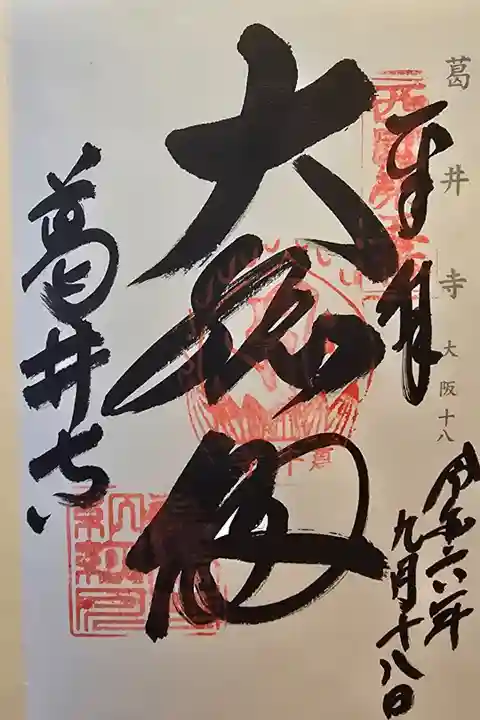 葛井寺 大阪十八
奉拝
令和六年
九月十八日
西國第五番
大悲殿
葛井寺